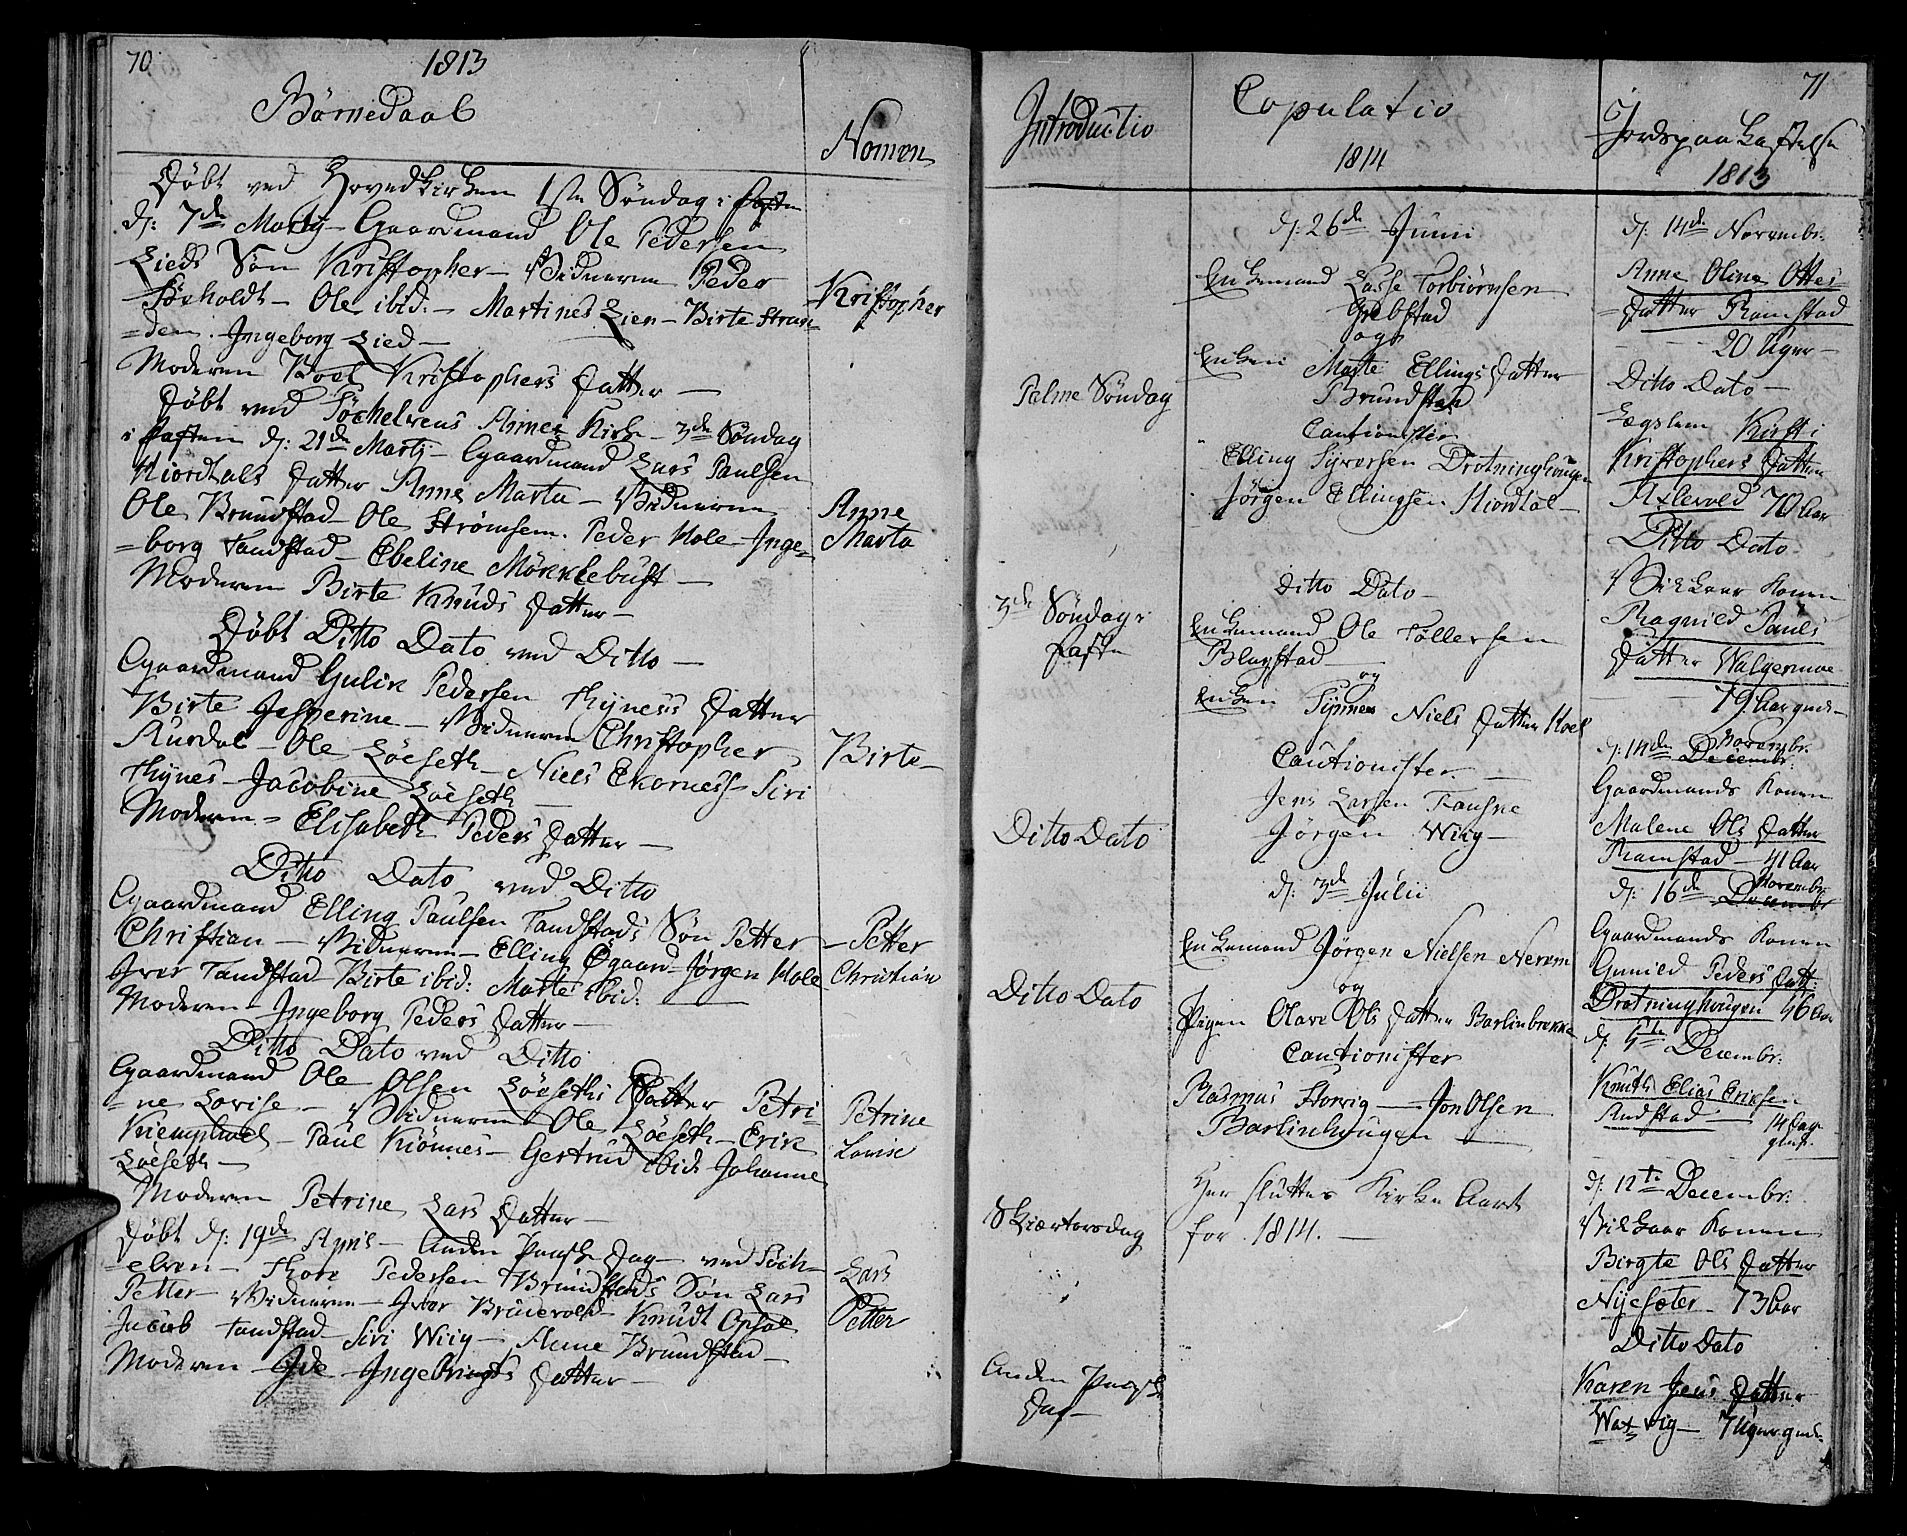 70
1813
Børnedaab
Nomen
Døbt ved Hovedkirken 1ste Søndag i Faste
d: 7de Martij - Gaardmand Ole Pedersen
Lieds Søn Kristopher - Vidnerne Peder
Sørholdt - Ole ibid. - Martines Lien - Birte Stran
=den. Ingeborg Lied -
Moderen Boel Kristophers Datter -
Kristopher
Døbt ved Søchelvens Annex Kirke - 3de Søndag
i Fasten d: 21de Martij - Gaardmand Lars Paulsen
Hiordtals Datter Anne Marta - Vidnerne
Ole Brundstad - Ole Strømsem. Peder Hole - Inge-
=borg Tandstad - Ebeline Møkklebust -
Moderen Birte Knuds Datter -
Anne
Marta
Døbt Ditto Dato ved Ditto -
Gaardmand Gulik Pedersen Hynes's Datter
Birte Jesperine - Vidnerne Christopher
Aursdal - Ole Løeseth - Niels Ekorness - Siri
Hynes - Jacobine Løeseth -
Moderen - Elisabeth Peders Datter -
Birte
Ditto Dato ved Ditto
Gaardmand Elling Paulsen Tandstads Søn Petter
Christian - Vidnerne - Elling Øgaard - Jørgen Hole
Iver Tandstad - Birte ibid: Marte ibid:
Moderen - Ingeborg Peders Datter -
- Petter
Christian
Ditto Dato ved Ditto
Gaardmand Ole Olsen Løeseths Datter Petri-
=ne Lovise - Vidnerne Ole Løeseth - Erik
Kiemphoel - Paul Kiønnes - Gertrud ibid Johanne
Løeseth -
Moderen Petrine Lars Datter -
Petrine
Lovise
Døbt d: 19de April - Anden Paaske Dag - ved Søch-
=elven - Thore Pedersen Brundstads Søn Lars
Petter - Vidnerne - Iver Brunevold - Knudt Opsal
Jacob Tandstad - Siri Wiig - Anne Brundstad -
Moderen - Ide - Ingebrigts Datter -
Lars
Petter
71
Introductio
Palme Søndag
3de Søndag i
Faste
Ditto Dato
Ditto Dato
Skiertorsdag
Anden Paaske
Dag -
Copulatio
1814
d: 26de Junii
Enkemand Lasse Torbiørnsen
Grebstad
og
Enken Marte Ellings Datter
Brundstad
Cautionister
Elling Syversen Drotninghougen
Jørgen Ellingsen Hiordtal -
Ditto Dato -
Enkemand Ole Tollersen
Blagstad -
og
Enken Synnes Niels Datter Hoel
Cautionister -
Jens Larsen Fausne
Jørgen Wiig -
d: 3de Julii
Enkemand Jørgen Nielsen Nerem
og
Pigen Olave Ols Datter Barlinbrække
Cautionister
Rasmus Storvig - Jon Olsen
Barlinhougen -
Her sluttes Kirke Aaret
for 1814. -
Jordspaakastelse
1813
d: 14de Novembr.
Anne Oline Ottes
=Datter Ramstad
- 20 Uger -
Ditto Dato -
Lægslem Kirsti
Kristophers Datter
Axlevold 70 Aar
Ditto Dato -
Vilkaar Konen
Ragnild Pauls
Datter Walgermoe
- 79 Aar gml -
d: 14de Novembr.
Decembr:
Gaardmands Konen
Malene Ols Datter
Ramstad - 41 Aar
d: 16de Novembr.
Decembr
Gaardmands Konen
Gunild Peders Datt:
Drotninghougen 46 Aar
d: 5te Decembr:
Knuth Elias Eriksen
Andstad - 14 Dag
gml.
d: 12te Decembr:
Vilkaar Konen
Birgte Ols Datter
Nysæter - 73 Aar
Ditto Dato
Karen Jens Datter
Watvig - 7 Uger gml.